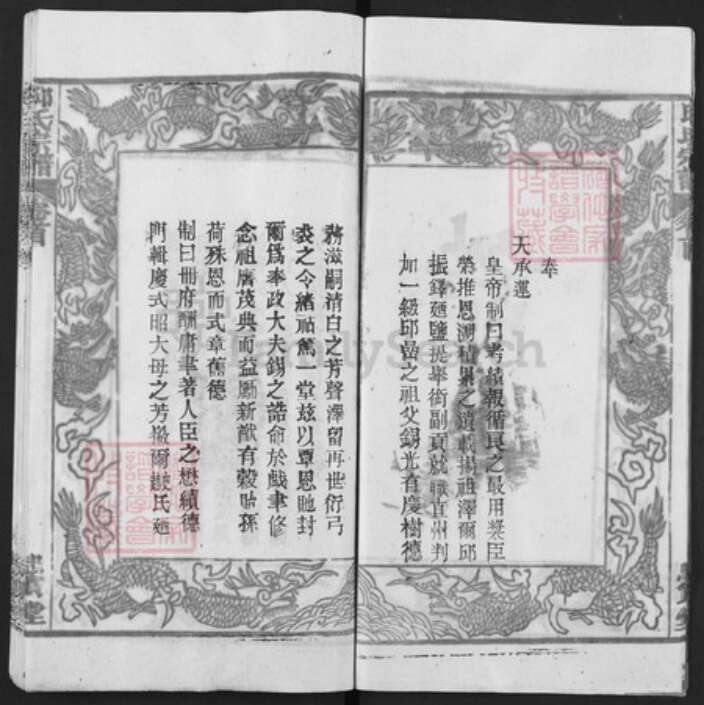 奉
天承運
皇帝制曰考績報循良之最用奬臣
榮推恩溯積累之遺載揚祖澤爾邱
振鐸鹽提舉銜副貢就職直州判
加一級邱嵒之祖父錫光有慶樹德
務滋嗣清白之芳聲澤留再世衍弓
裘之令緒祜篤一堂兹以覃恩貤封
爾爲奉政大夫錫之誥命於戲聿修
念祖膺茂典而益勵新猷有穀貽孫
荷殊恩而式章舊德
制曰冊府酬庸聿著人臣之懋績德
門輯慶式昭大母之芳徽爾氏
邱氏宗譜
卷首
FamilySearch